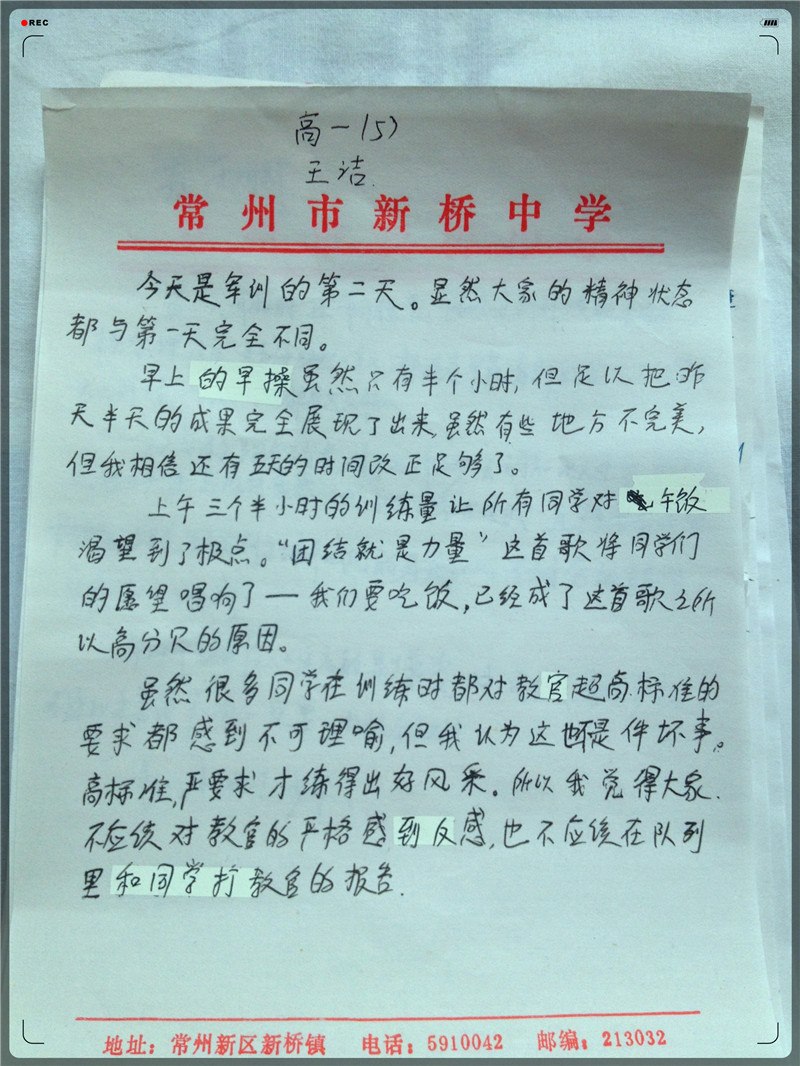 REC
高一(5)
王洁.
常州市新桥中学
今天是军训的第二天。显然大家的精神状态
都与第一天完全不同。
早上的早操虽然只有半个小时,但足以把昨
天半天的成果完全展现了出来,虽然有些地方不完美,
但我相信还有五天的时间改正足够了。
上午三个半小时的训练量让所有同学对午饭
渴望到了极点。“团结就是力量”这首歌将同学们
的愿望唱响了一我们要吃饭,已经成了这首歌之所
以高分贝的原因。
虽然很多同学在训练时都对教官超高标准的
要求都感到不可理喻,但我认为这也不是件坏事。
高标准,严要求才练得出好风采。所以我觉得大家.
不应该对教官的严格感到反感,也不应该在队列
里和同学打教官的报告.
地址:常州新区新桥镇 电话:5910042 邮编:213032